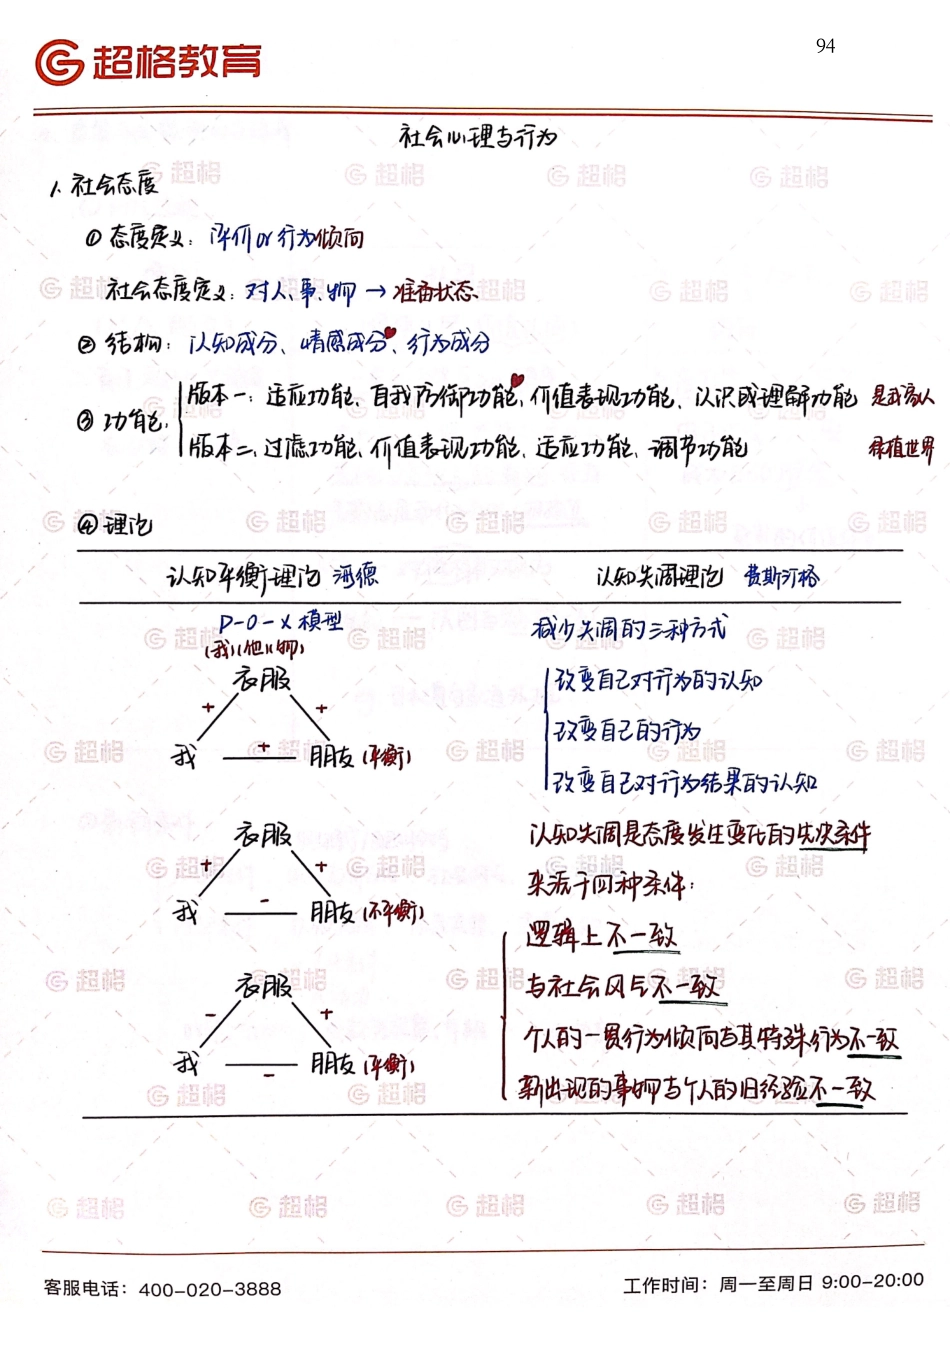 超格教育
94
社会心理与行为
1. 社会态度
① 态度定义：评价or行为倾向
社会态度定义：对人、事、物 → 准备状态
② 结构：认知成分、情感成分、行为成分
③ 功能
版本一：适应功能、自我防御功能、价值表现功能、认识或理解功能
版本二、过滤功能、价值表现功能、适应功能、调节功能
世界
④ 理论
认知平衡理论 海德
P-O-X模型
(我)(他)(物)
衣服
+ +
我 + 朋友 (平衡)
衣服
+ +
我 - 朋友 (不平衡)
衣服
- +
我 - 朋友 (平衡)
认知失调理论 费斯汀格
减少失调的三种方式
改变自己对行为的认知
改变自己的行为
改变自己对行为结果的认知
认知失调是态度发生变化的先决条件
来源于四种条件：
逻辑上不一致
与社会风气不一致
个人的一贯行为倾向与其特殊行为不一致
新出现的事物与个人的旧经验不一致
客服电话：400-020-3888
工作时间：周一至周日 9:00-20:00